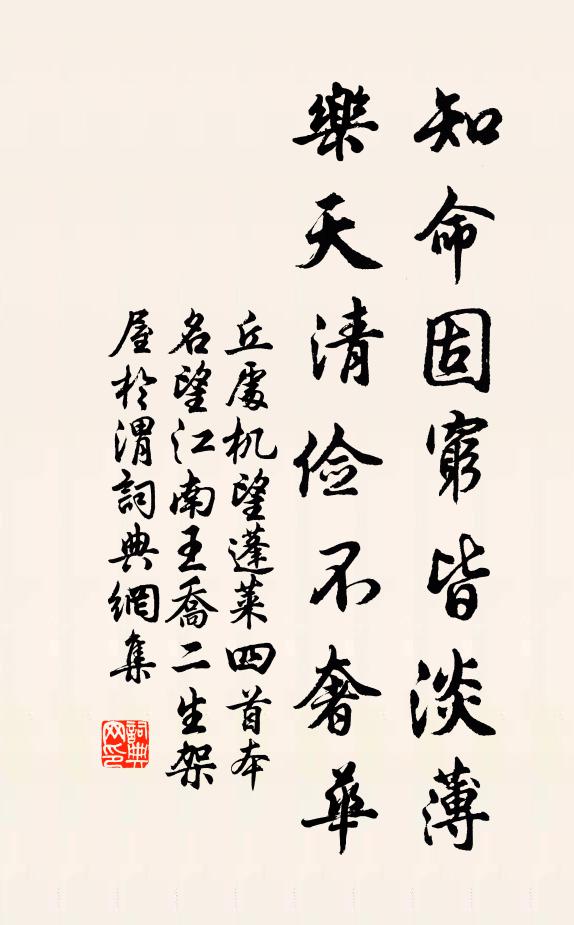 知命固窮皆淡薄
樂天清俭不奢華
丘處机望蓬莱四首本
名望江南王喬二生架
屋於渭詞典網集
詞典
网印